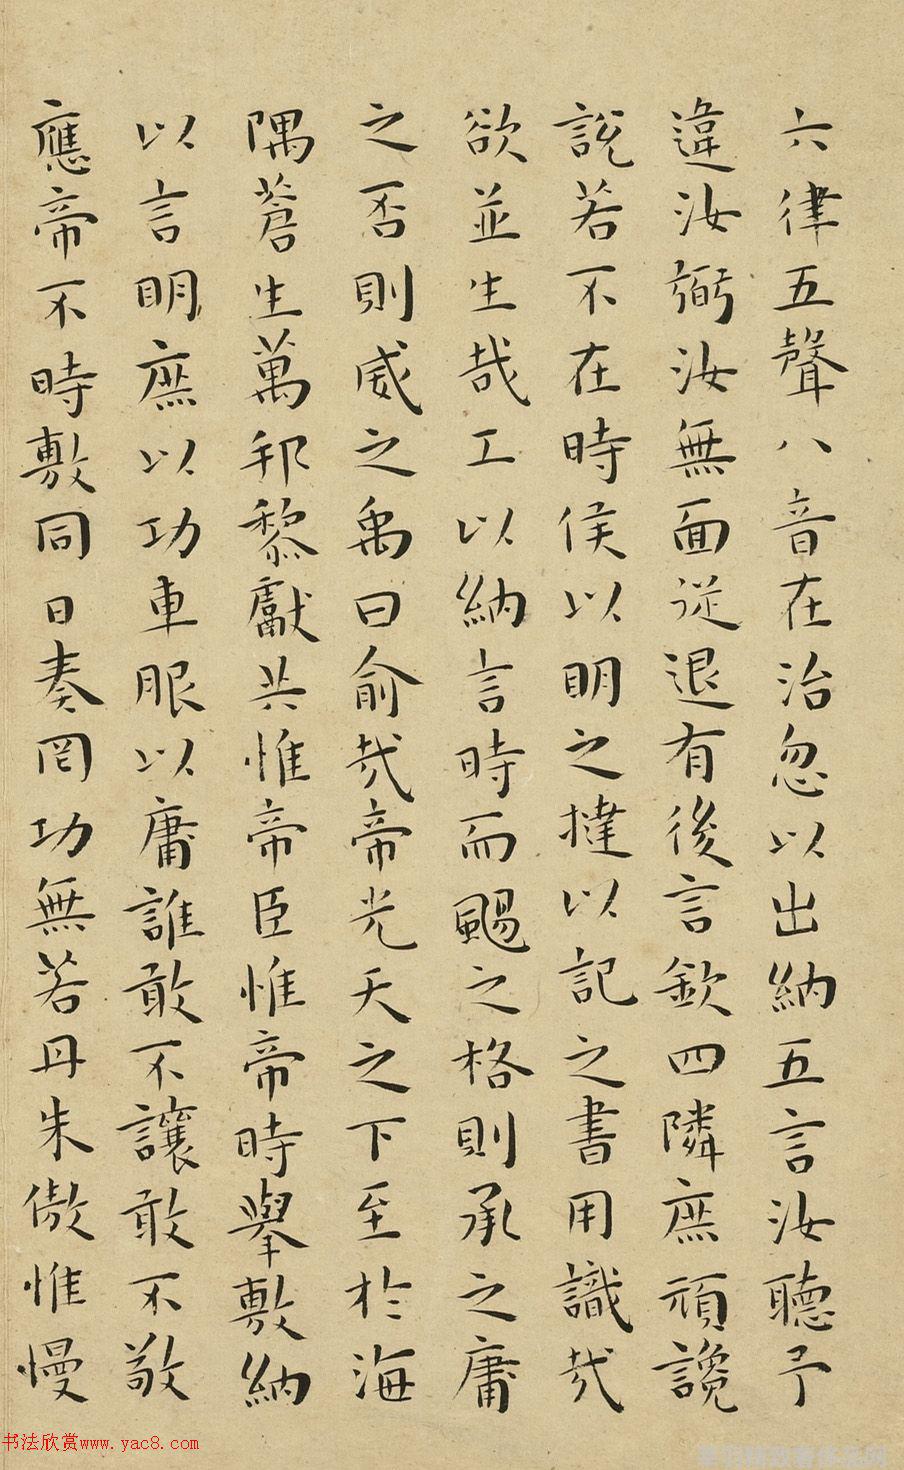 六律五聲八音在治忽以出納五言汝聽予
違汝弼汝無面從退有後言欽四隣庶頑讒
說若不在時侯以明之撻以記之書用識哉
欲並生哉工以納言時而颺之格則承之庸
之否則威之禹曰俞哉帝光天之下至於海
隅蒼生萬邦黎獻共惟帝臣惟帝時舉敷納
以言明庶以功車服以庸誰敢不讓敢不敬
應帝不時敷同日奏罔功無若丹朱傲惟慢
书法欣赏www.yac8.com